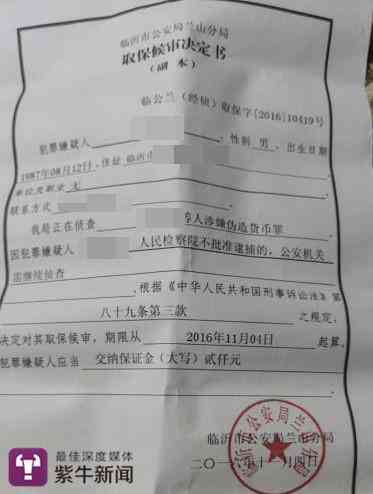 临沂市公安局兰山分局
取保候审决定书
（副本）
临公兰（经侦）取保字[2016]10419号
犯罪嫌疑人 性别 男 、出生日期
1987年08月12日，住址 临沂市
单位及职业 无
联系方式
我局正在侦查 等人涉嫌伪造货币罪
因犯罪嫌疑人 人民检察院不批准逮捕的，公安机关
需继续侦查
，根据《中华人民共和国刑事诉讼法》第
八十九条第三款 之规定，
决定对其取保候审，期限从 2016年11月04日 起算。
犯罪嫌疑人应当 交纳保证金（大写）贰仟元
临沂市公安局兰山分局
二〇一六年十一月四日
临沂市公安局兰山分局
最佳深度媒体
紫牛新闻